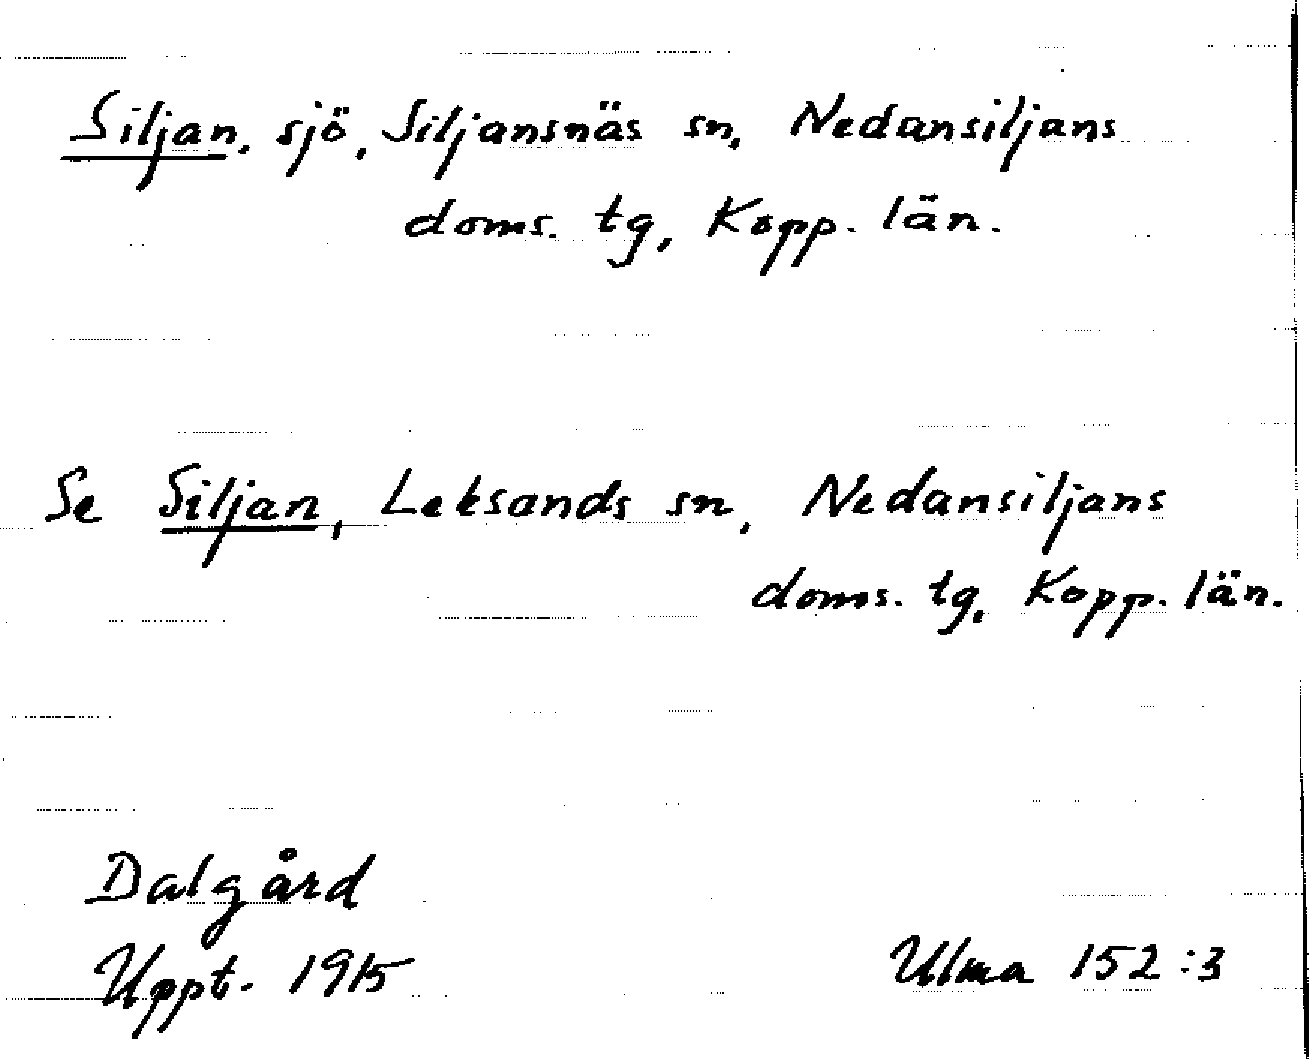 Siljan, sjö, Siljansnäs sn, Nedansiljans
doms. tg, Kopp. län.
Se Siljan, Leksands sn, Nedansiljans
doms. tg, Kopp. län.
Dalgård
Uppt. 1915
Ulma 152:3